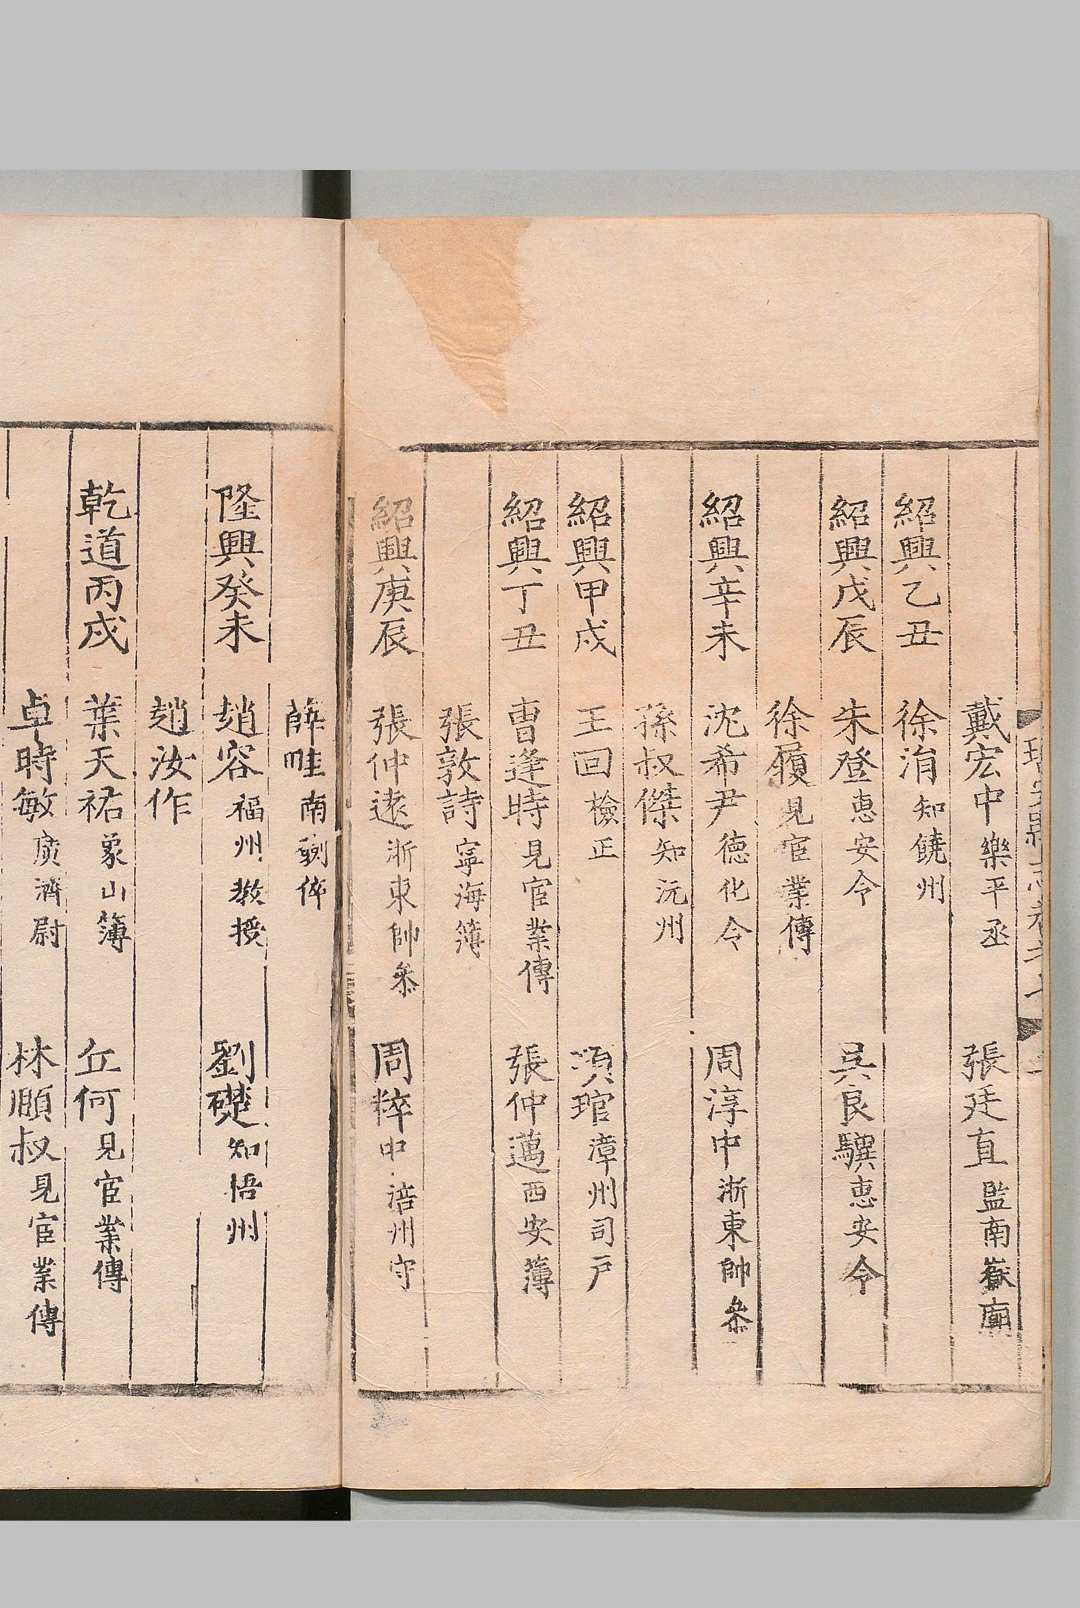 瑞安縣志卷之七
戴宏中樂平丞 張廷直監南嶽廟
紹興乙丑 徐洧知饒州
紹興戊辰 朱登惠安令 吳良驥惠安令
徐履見宦業傳
紹興辛未 沈希尹德化令 周淳中浙東帥叅
孫叔傑知沅州
紹興甲戌 王回檢正 項琯漳州司戶
紹興丁丑 曹逢時見宦業傳 張仲邁西安簿
張敦詩寧海簿
紹興庚辰 張仲遠浙東帥叅 周粹中涪州守
薛 南劍倅
隆興癸未 趙容福州教授 劉礎知梧州
趙汝作
乾道丙戌 葉天祐象山簿 丘何見宦業傳
卓時敏廣濟尉 林願叔見宦業傳